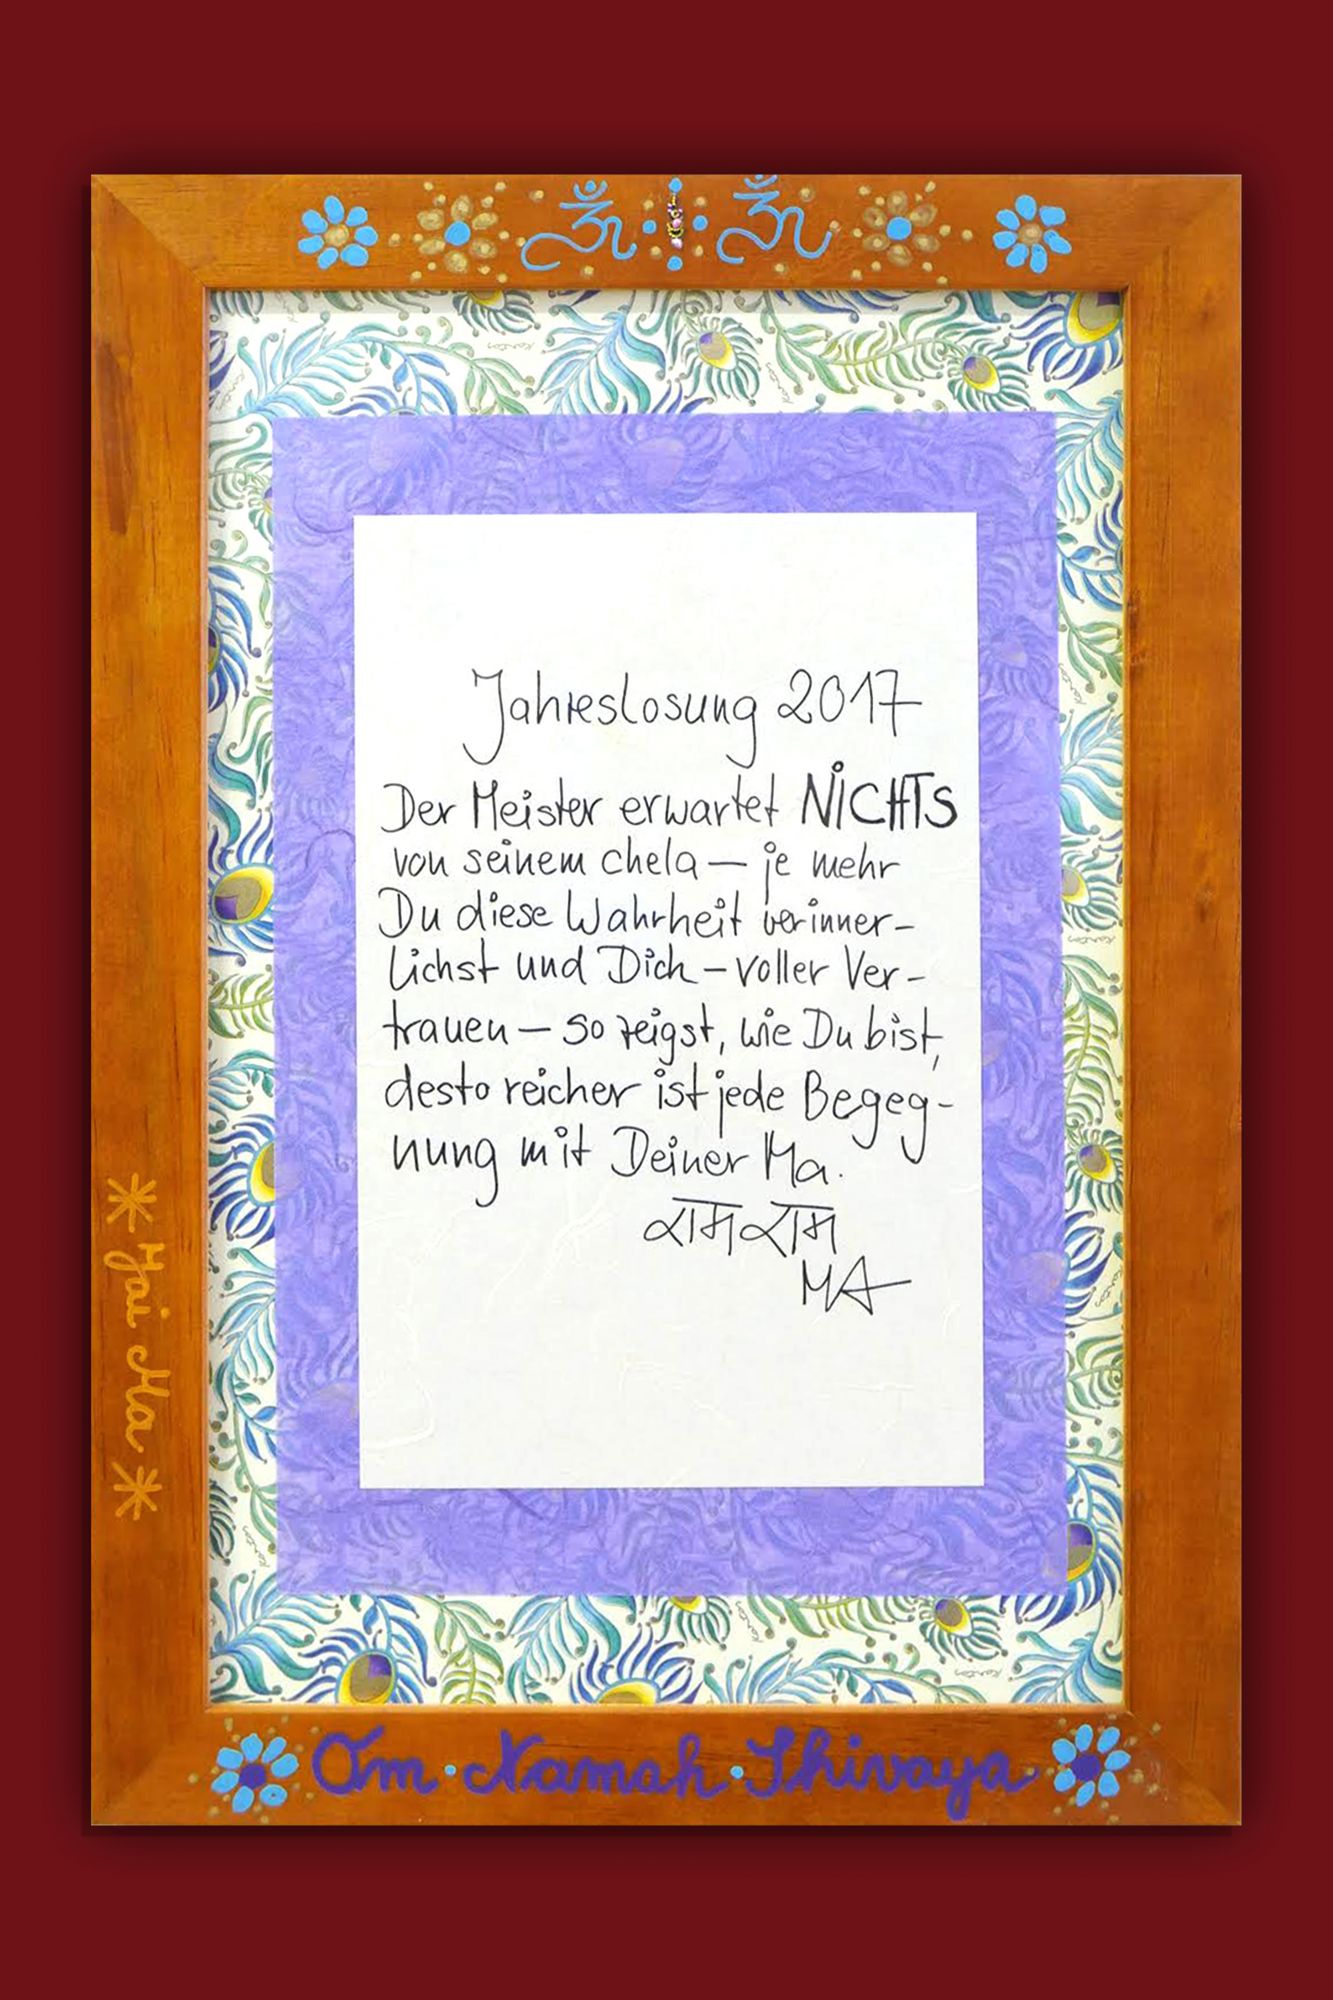 ॐ ॐ
Jahreslosung 2017
Der Meister erwartet NICHTS
von seinem chela – je mehr
Du diese Wahrheit verinner-
lichst und Dich – voller Ver-
trauen – so zeigst, wie Du bist,
desto reicher ist jede Begeg-
nung mit Deiner Ma.
राम राम
MA
Jai Ma
Om · Namah · Shivaya